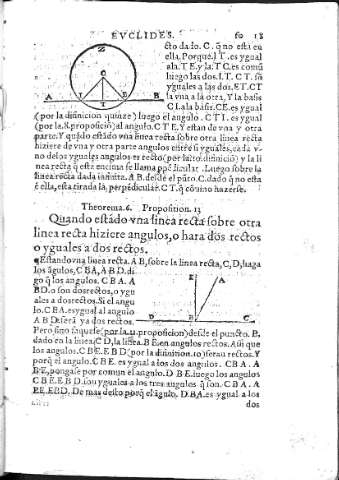 EVCLIDES. fo 18
cto dado. C. q̃ no está en
ella. Porque. I T. es ygual
ala. T E. y la. T C. es comũ
luego las dos. I T. C T. sõ
yguales a las dos. E T. C T
la vna a la otra, Y la basis
C I. ala basis. C E. es ygual
(por la difinicion quinze) luego el angulo. C T I. es ygual
(por la. 8. proposiciõ) al angulo. C T E. Y estan de vna y otra
parte. Y quãdo estãdo vna linea recta sobre otra linea recta
hiziere de vna y otra parte angulos entre si yguales, cada v-
no delos yguales angulos es recto (por la 10. difiniciõ) y la li
nea recta q̃ está encima se llama ppẽdicular. Luego sobre la
linea recta dada infinita. A B. desde el pũto. C. dado q̃ no esta
ẽ ella, esta tirada la perpẽdicular. C T. q̃ cõvino hazerse.
C
A I T E B
Theorema. 6. Proposition. 13
Quando estãdo vna linea recta sobre otra
linea recta hiziere angulos, o hara dos rectos
o yguales a dos rectos.
Estando vna linea recta. A B, sobre la linea recta, C, D, haga
los ãgulos, C B A, A B D. di
go q̃ los angulos. C B A. A
B D. o son dos rectos, o ygu
ales a dos rectos. Si el angu
lo. C B A. es ygual al angulo
A B D. serã ya dos rectos.
E A
D B C
Pero sino saquese (por la 11. proposicion) desde el puncto. B.
dado en la linea, C D, la linea. B E. en angulos rectos. Asi que
los angulos. C B E. E B D (por la difinition. 10) seran rectos. Y
porq̃ el angulo. C B E. es ygual a los dos angulos. C B A. A
B E, pongase por comun el angulo. D B E. luego los angulos
C B E. E B D. son yguales a los tres angulos q̃ son. C B A. A
B E. E B D. De mas desto porq̃ el ãgulo. D B A. es ygual a los
dos